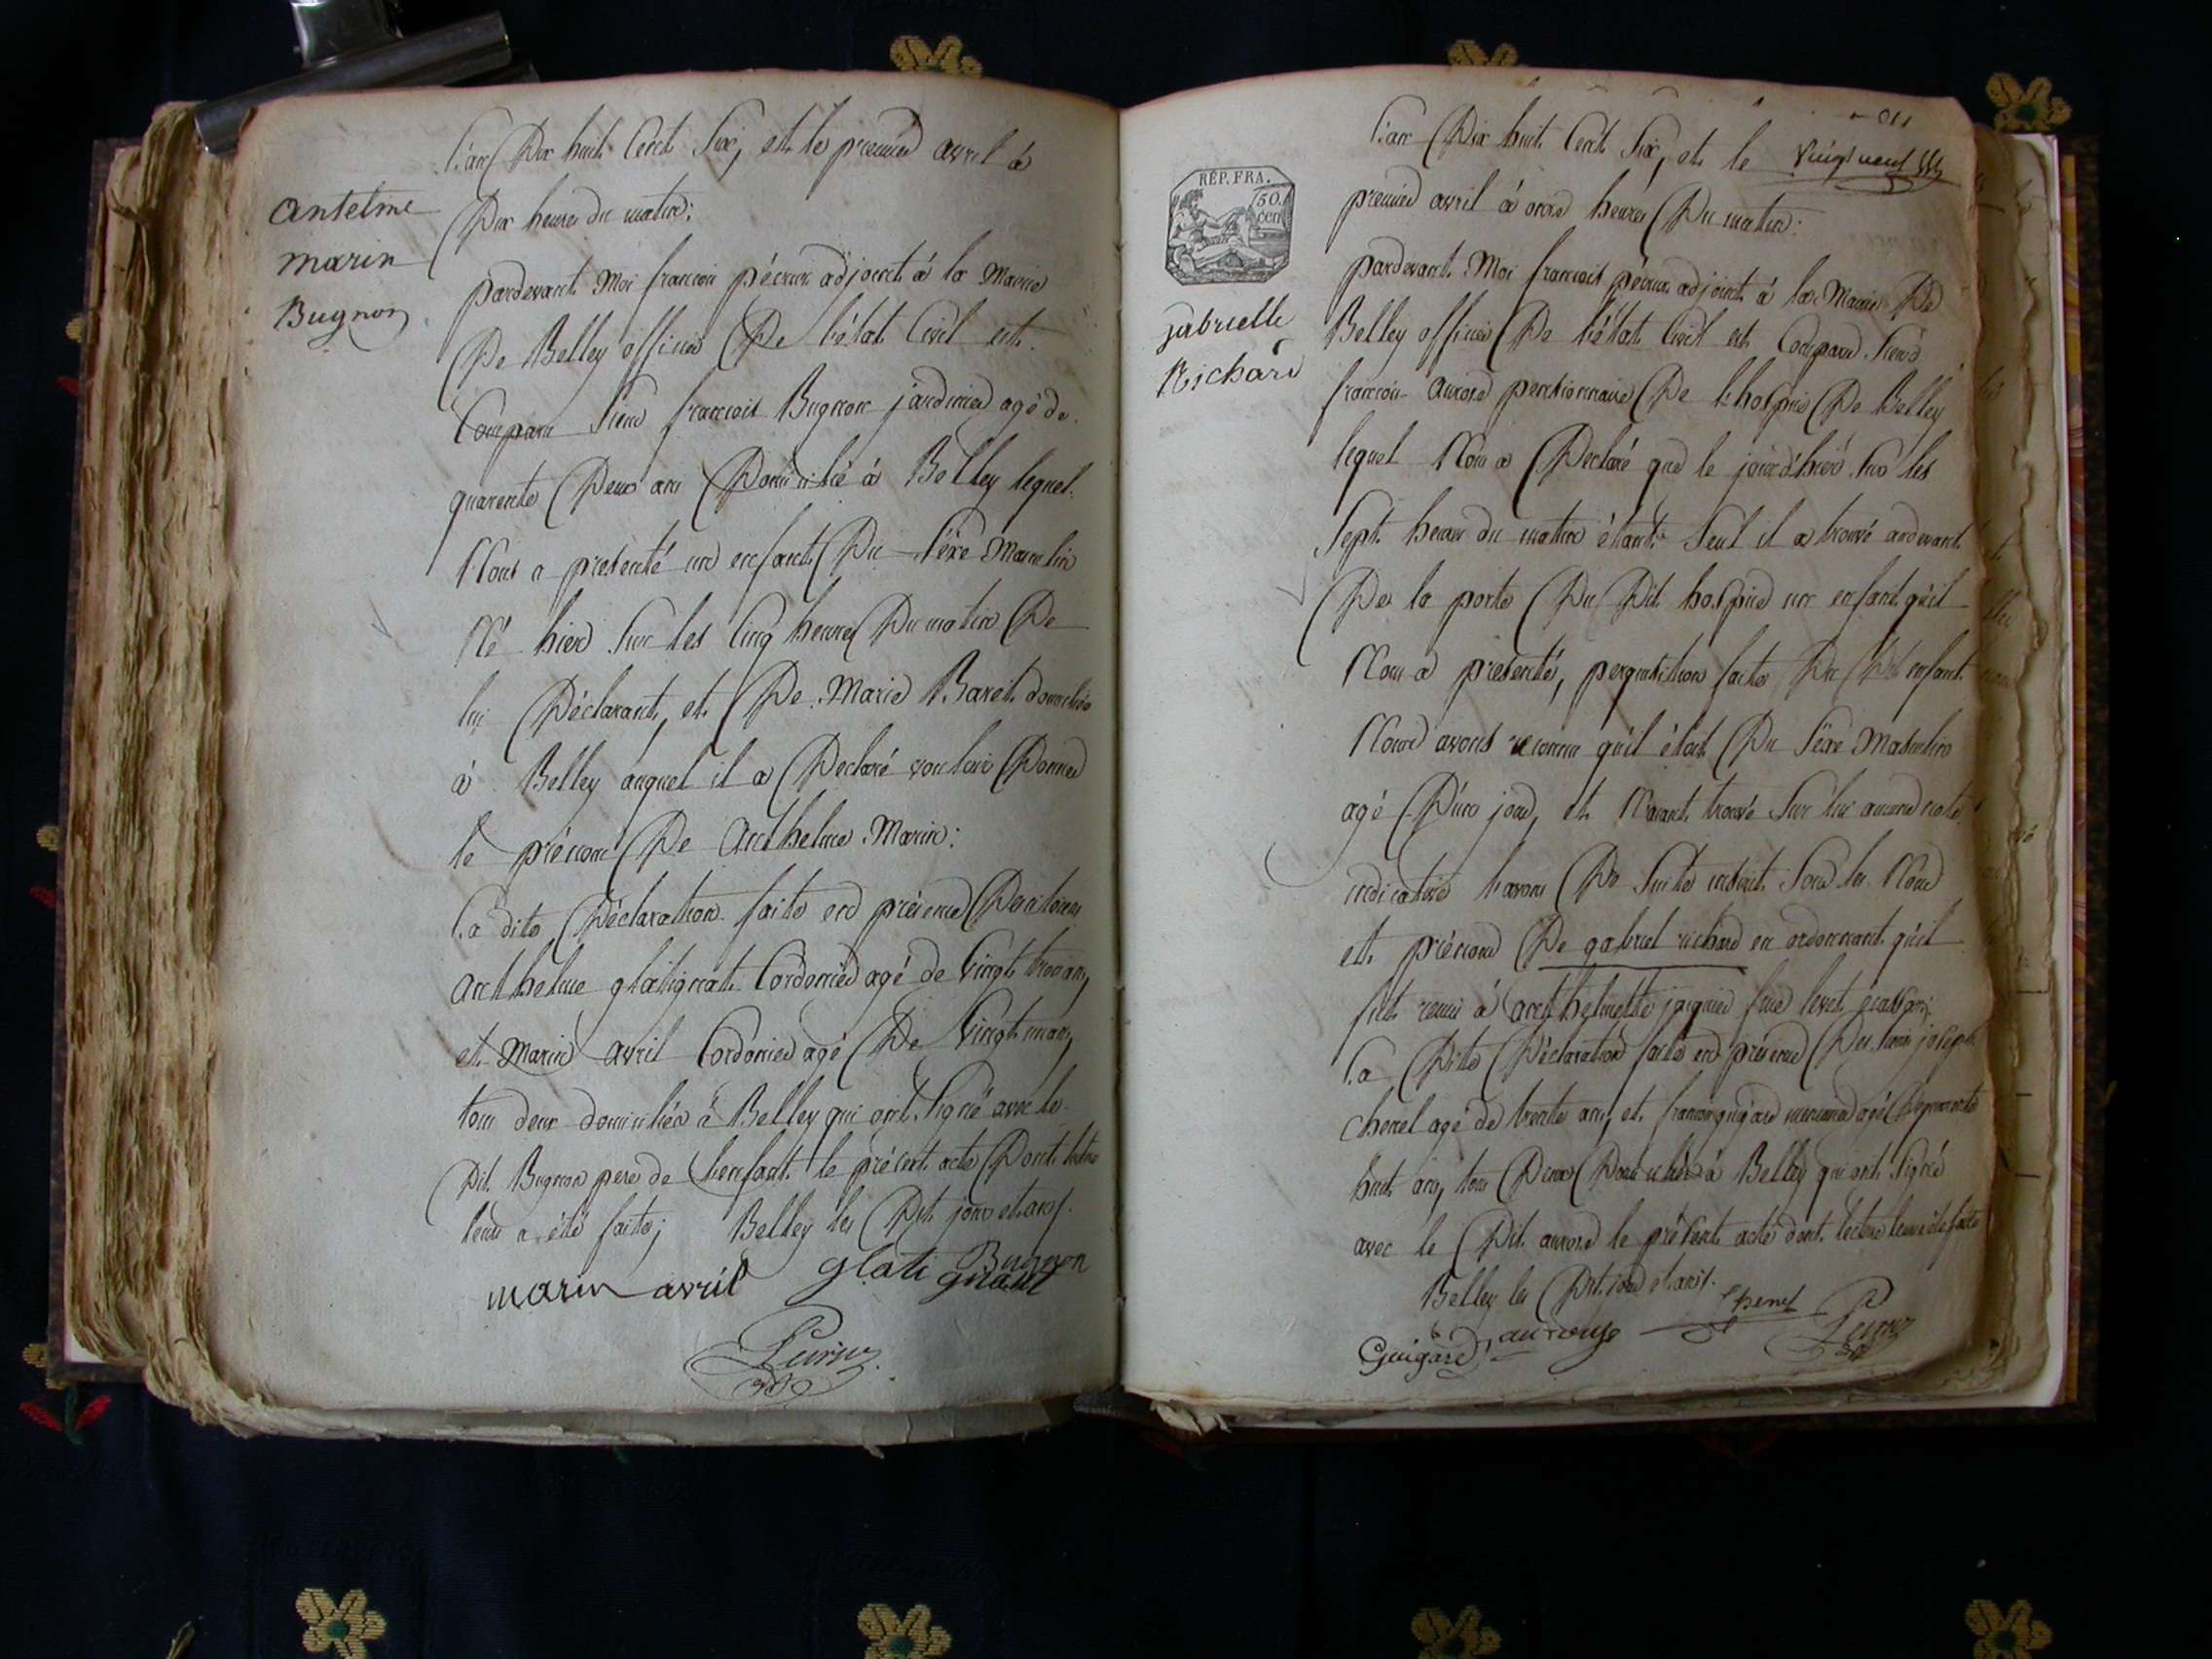 L'an Dix huit Cent Six, et le premier avril à
Dix heures du matin:
Anthelme
marin
Bugnon
pardevant Moi francois pécrux adjoint à la Mairie
De Belley officier De l'état Civil est
Comparu Sieur francois Bugnon jardinier agé de
quarente Deux ans Domicilié à Belley lequel
Nous a presenté un enfant Du Séxe Masculin
Né hier Sur les Cinq heures Du matin De
lui Déclarant, et De Marie Baret domiciliée
à Belley auquel il a Declaré vouloir Donner
le prénom De Anthelme Marin:
La dite Déclaration faite en présence Des citoiens
Anthelme glatignat Cordonier agé de Vingt trois ans,
et Marin avril Cordonier agé De Vingt un ans,
tous deux domiciliés à Belley qui ont Signé avec le
Dit Bugnon pere de l'enfant le présent acte Dont lecture
leur a été faite; Belley les Dit jour et an.
marin avril glati gnant Bugnon
REP. FRA.
50.
cen
L'an Dix huit Cent Six, et le Vingt neuf
premier avril à onze heures Du matin:
gabrielle
Richard
pardevant Moi francois pécrux adjoint à la Mairie De
Belley officier De l'état Civil est Comparu Sieur
francois aurose pensionnaire De l'hospice De Belley
lequel Nous a Declaré que le jour d'hier Sur les
Sept heures du matin étant Seul il a trouvé audevant
De la porte Du Dit hospice un enfant qu'il
Nous a presenté, perquisition faite Du Dit enfant
Nous avons reconnu qu'il étoit Du Séxe Masculin
agé D'un jour, et N'aiant trouvé Sur lui aucune note
indicative l'avons De Suite inscrit Sous les Nom
et prénom De gabriel richard en ordonnant qu'il
fut remis à anthelmette
La Ditte Déclaration faite en présence Des Sieurs joseph
chenel agé de trente ans, et francois guigard agé De quarente
huit ans, tous Deux Domiciliés à Belley qui ont Signé
avec le Dit aurose le présent acte dont lecture leur a été faite
Belley les Dit jour et an.
Guigard aurouse Chenel